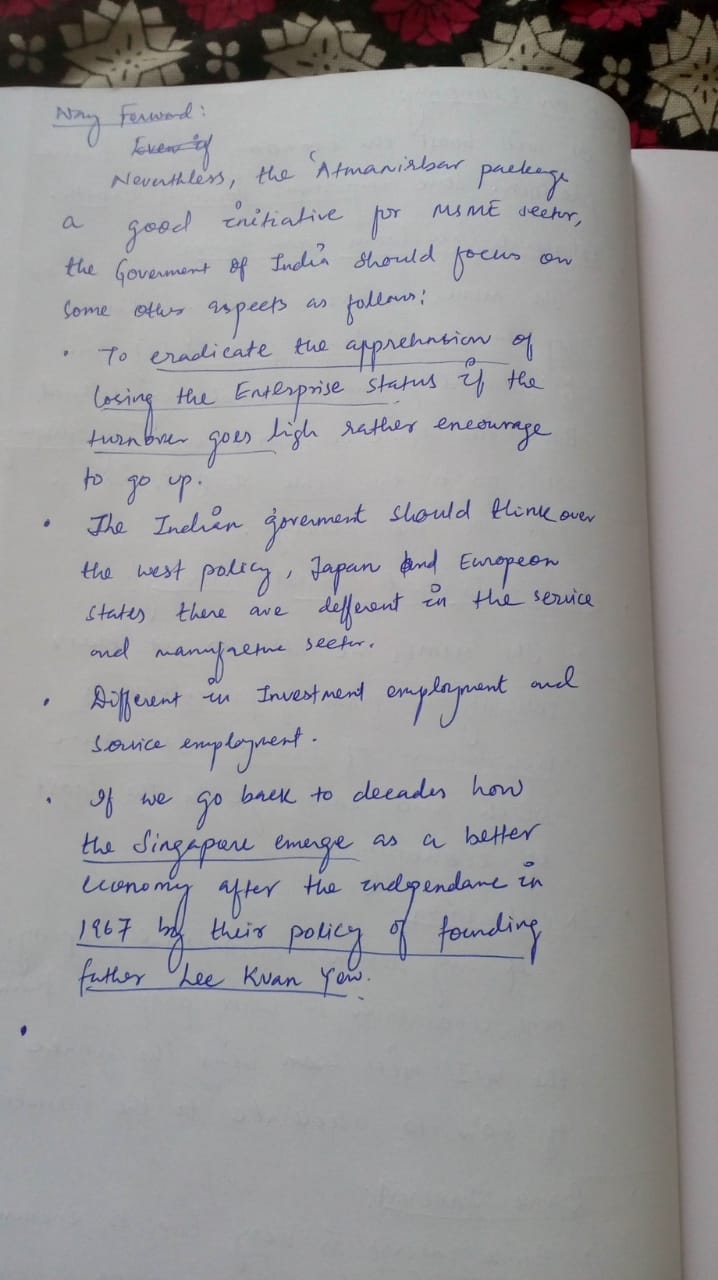 Way Forward:
Even if
Neverthless, the 'Atmanirbar package
a good initiative for MSME sector,
the Goverment of India should focus on
some other aspects as follows:
• To eradicate the apprehnsion of
losing the Enterprise status if the
turnover goes high rather encourage
to go up.
• The Indian goverment should think over
the west policy, Japan and European
states there are defferent in the service
and manufacture sector.
• Different in Investment employment and
service employment.
• If we go back to decades how
the Singapore emerge as a better
economy after the independane in
1967 by their policy of founding
father Lee Kuan Yew.
•